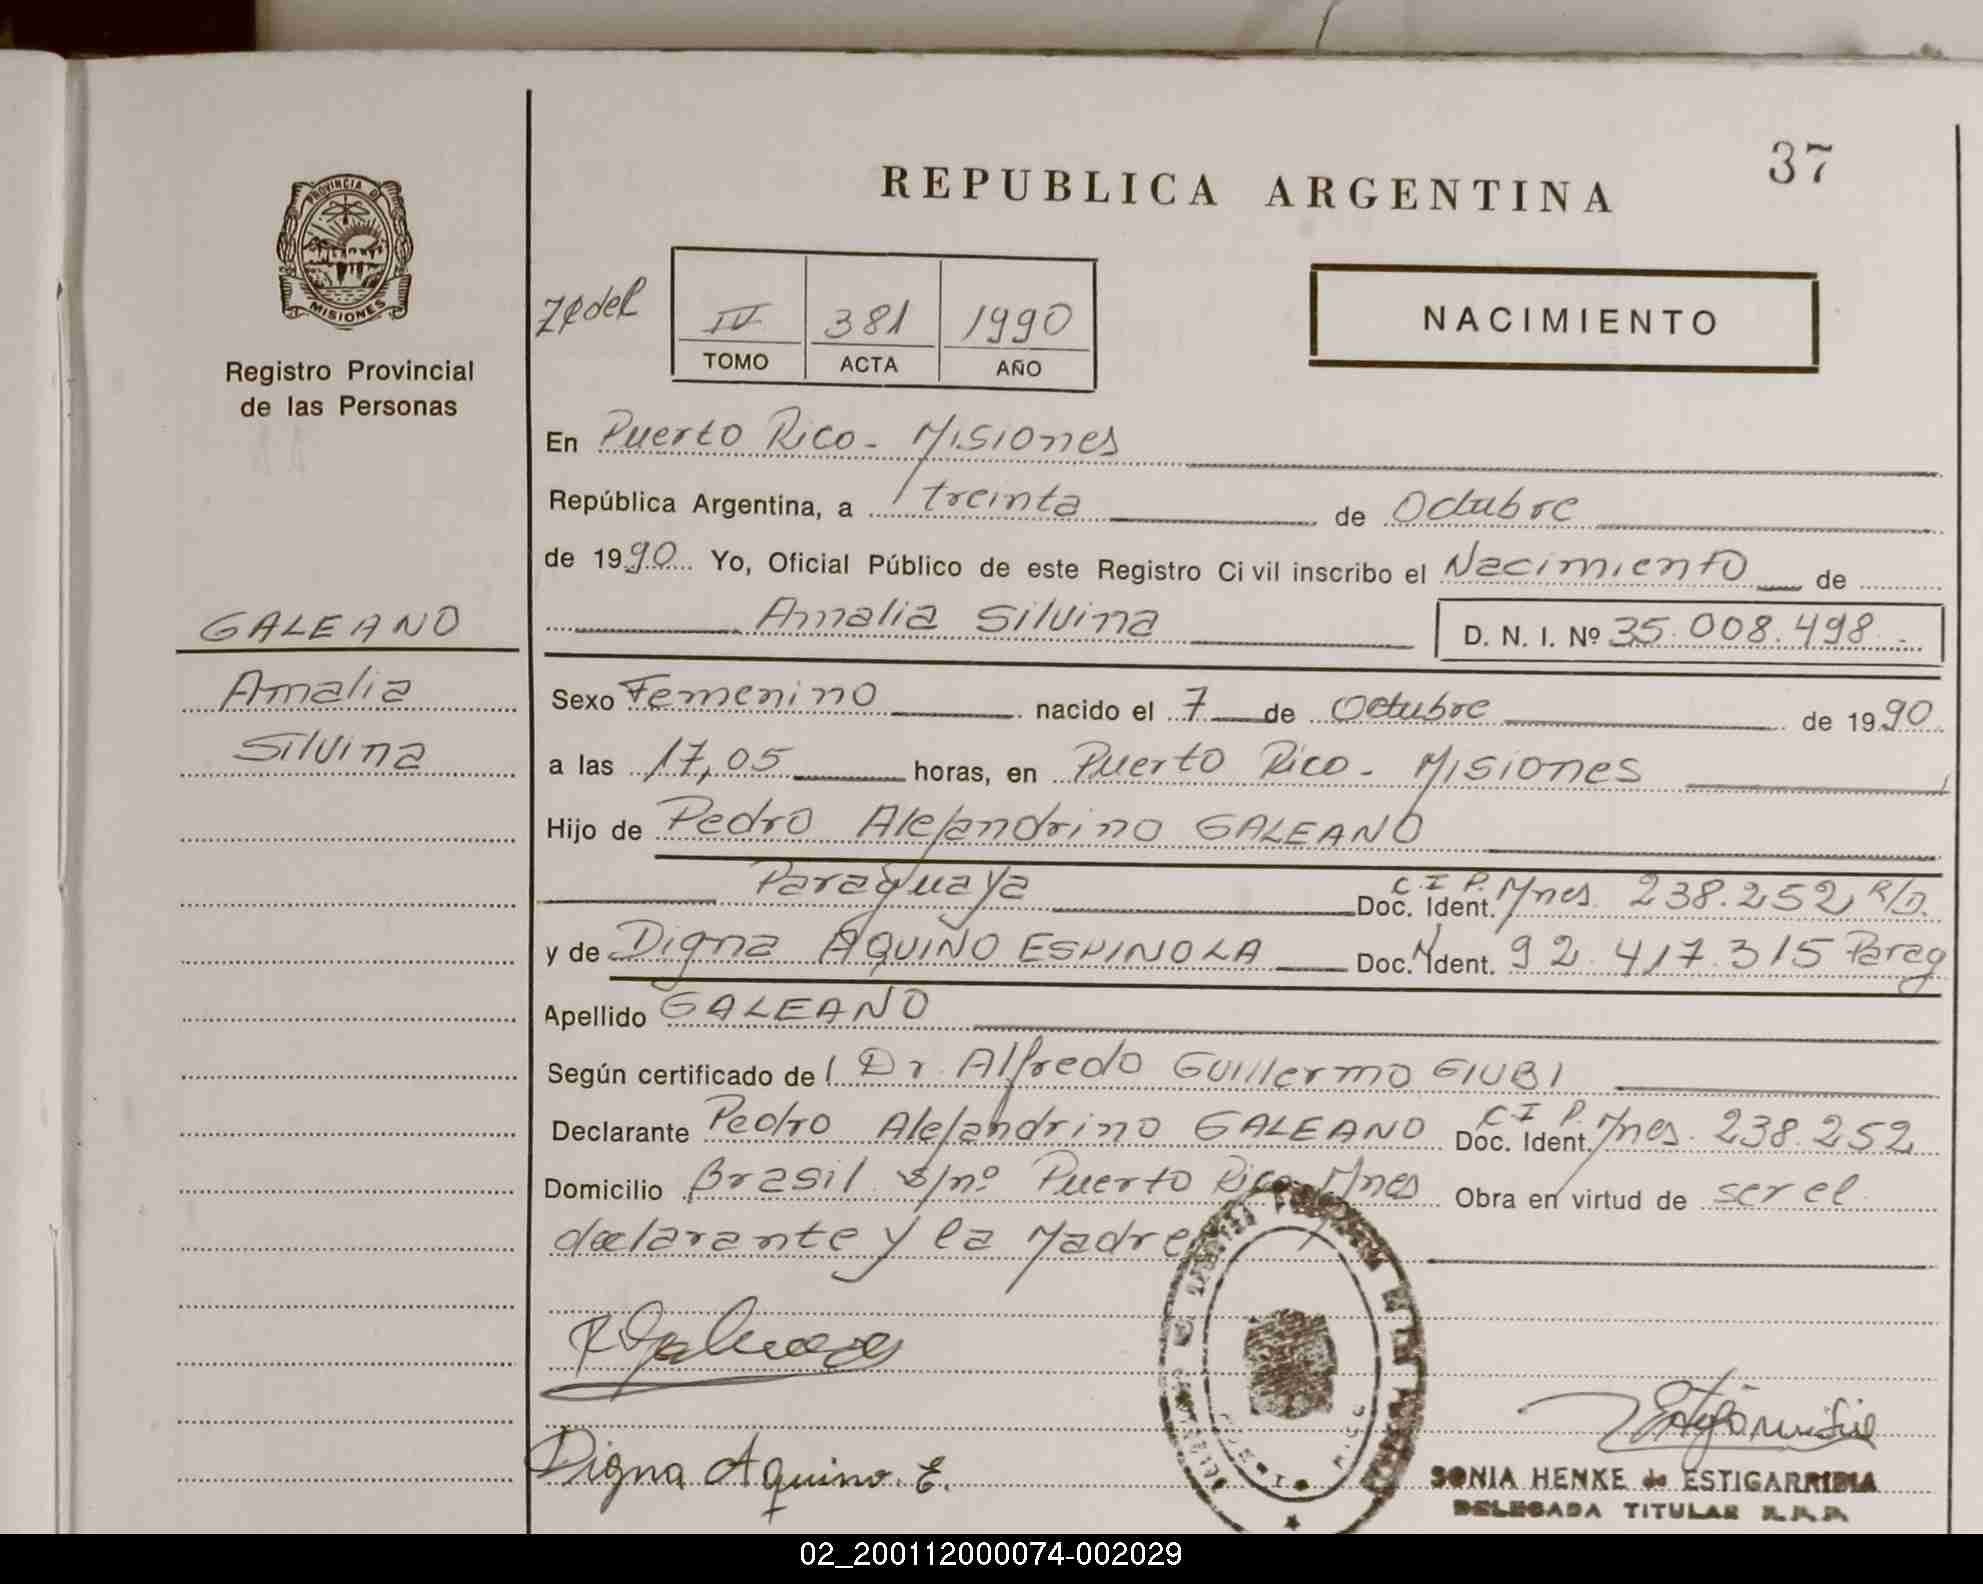 37
REPUBLICA ARGENTINA
PROVINCIA DE
MISIONES
Registro Provincial
de las Personas
IV 381 1990
TOMO ACTA AÑO
NACIMIENTO
En Puerto Rico - Misiones
República Argentina, a treinta de Octubre
de 1990 Yo, Oficial Público de este Registro Civil inscribo el Nacimiento de
Amalia Silvina D. N. I. Nº 35.008.498.-
GALEANO
Amalia
Silvina
Sexo Femenino nacido el 7 de Octubre de 1990
a las 17,05 horas, en Puerto Rico - Misiones
Hijo de Pedro Alejandrino GALEANO
Paraguaya Doc. Ident. C.I.P. Mnes. 238.252 R/D.
y de Digna AQUINO ESPINOLA Doc. Ident. 92.417.315 Parag
Apellido GALEANO
Según certificado del Dr Alfredo Guillermo GIUBI
Declarante Pedro Alejandrino GALEANO Doc. Ident. C.I.P. Mnes. 238.252
Domicilio Brasil s/nº Puerto Rico Mnes Obra en virtud de ser el
declarante y la Madre
Digna Aquino. E.
SONIA HENKE de ESTIGARRIBIA
DELEGADA TITULAR R.P.P.
02_200112000074-002029